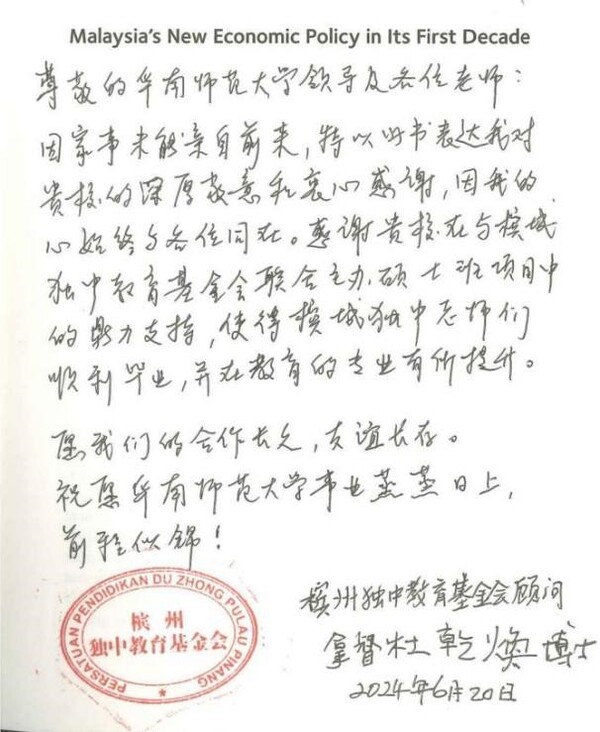 Malaysia's New Economic Policy in Its First Decade
尊敬的华南师范大学领导及各位老师：
因家事未能亲自前来，特以此书表达我对
贵校的深厚敬意和衷心感谢，因我的
心始终与各位同在。感谢贵校在与槟城
独中教育基金会联合主办硕士班项目中
的鼎力支持，使得槟城独中老师们
顺利毕业，并在教育的专业有所提升。
愿我们的合作长久，友谊长存。
祝愿华南师范大学事业蒸蒸日上，
前程似锦！
槟州独中教育基金会顾问
拿督杜乾焕博士
2024年6月20日
PERSATUAN PENDIDIKAN DU ZHONG PULAU PINANG
槟州
独中教育基金会